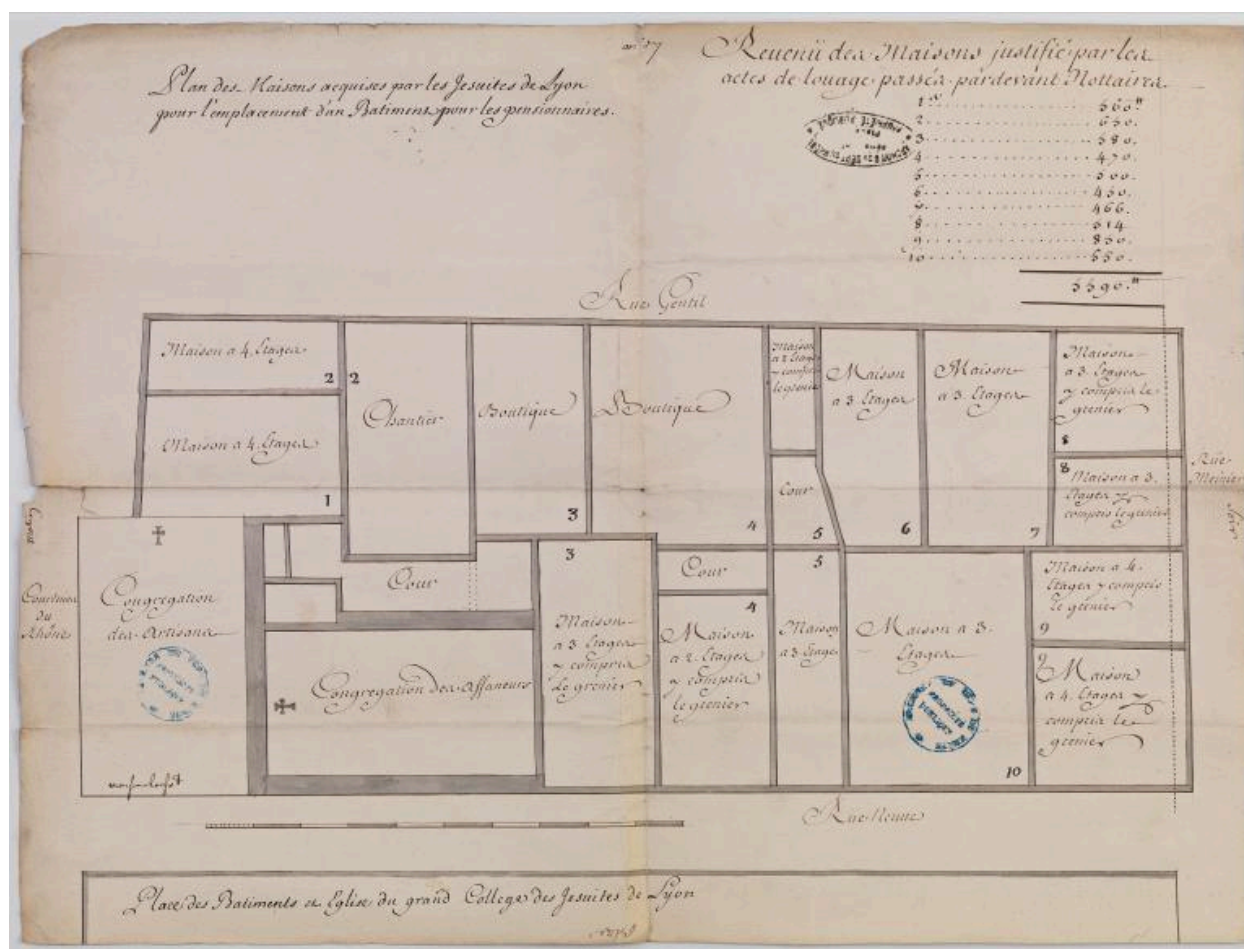 Plan des Maisons acquises par les Jesuites de Lyon
pour l'emplacement d'un Batiment pour les pensionnaires.
Revenü des Maisons justifié par les
actes de louage passés pardevant Nottaires.
1er 560.tt
2 650.
3 580.
4 470.
5 500.
6 450.
7 466.
8 514
9 850.
10 550.
5590.tt
Rue Gentil
Maison a 4. Etages
2
2
Chantier
Boutique
3
Boutique
4
Maison
a 2 Etages
y compris
le grenier
Cour
5
Maison
a 3. Etages
6
Maison
a 3. Etages
7
Maison
a 3. Etages
y compris le
grenier
8
8
Maison a 3.
Etages y
compris le grenier
Rüe
Meinier
Maison a 4. Etages
1
Courtine
du
Rhône
Congregation
des Artisans
Cour
Congregation des Affaneurs
3
Maison
a 3 Etages
y compris
le grenier
Cour
4
Maison
a 2. Etages
y compris
le grenier
5
Maison
a 3. Etages
Maison a 3.
Etages
10
Maison a 4.
Etages y compris
le grenier
9
9
Maison
a 4. Etages y
compris le
grenier
Rue Neuve
Place des Batiments et Eglise du grand College des Jesuites de Lyon